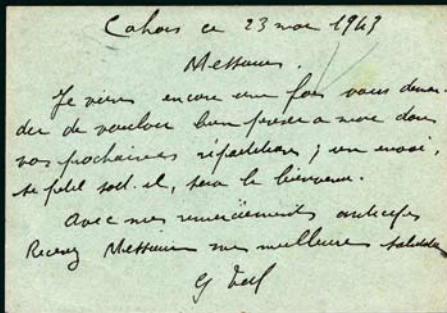 Cahors ce 23 mai 1943
Messieurs.
Je viens encore une fois vous deman-
der de vouloir bien penser a moi dans
vos prochaines répartitions ; un envoi,
se petit soit-il, sera le bienvenu.
Avec mes remerciements anticipés
Recevez Messieurs mes meilleures salutations
G